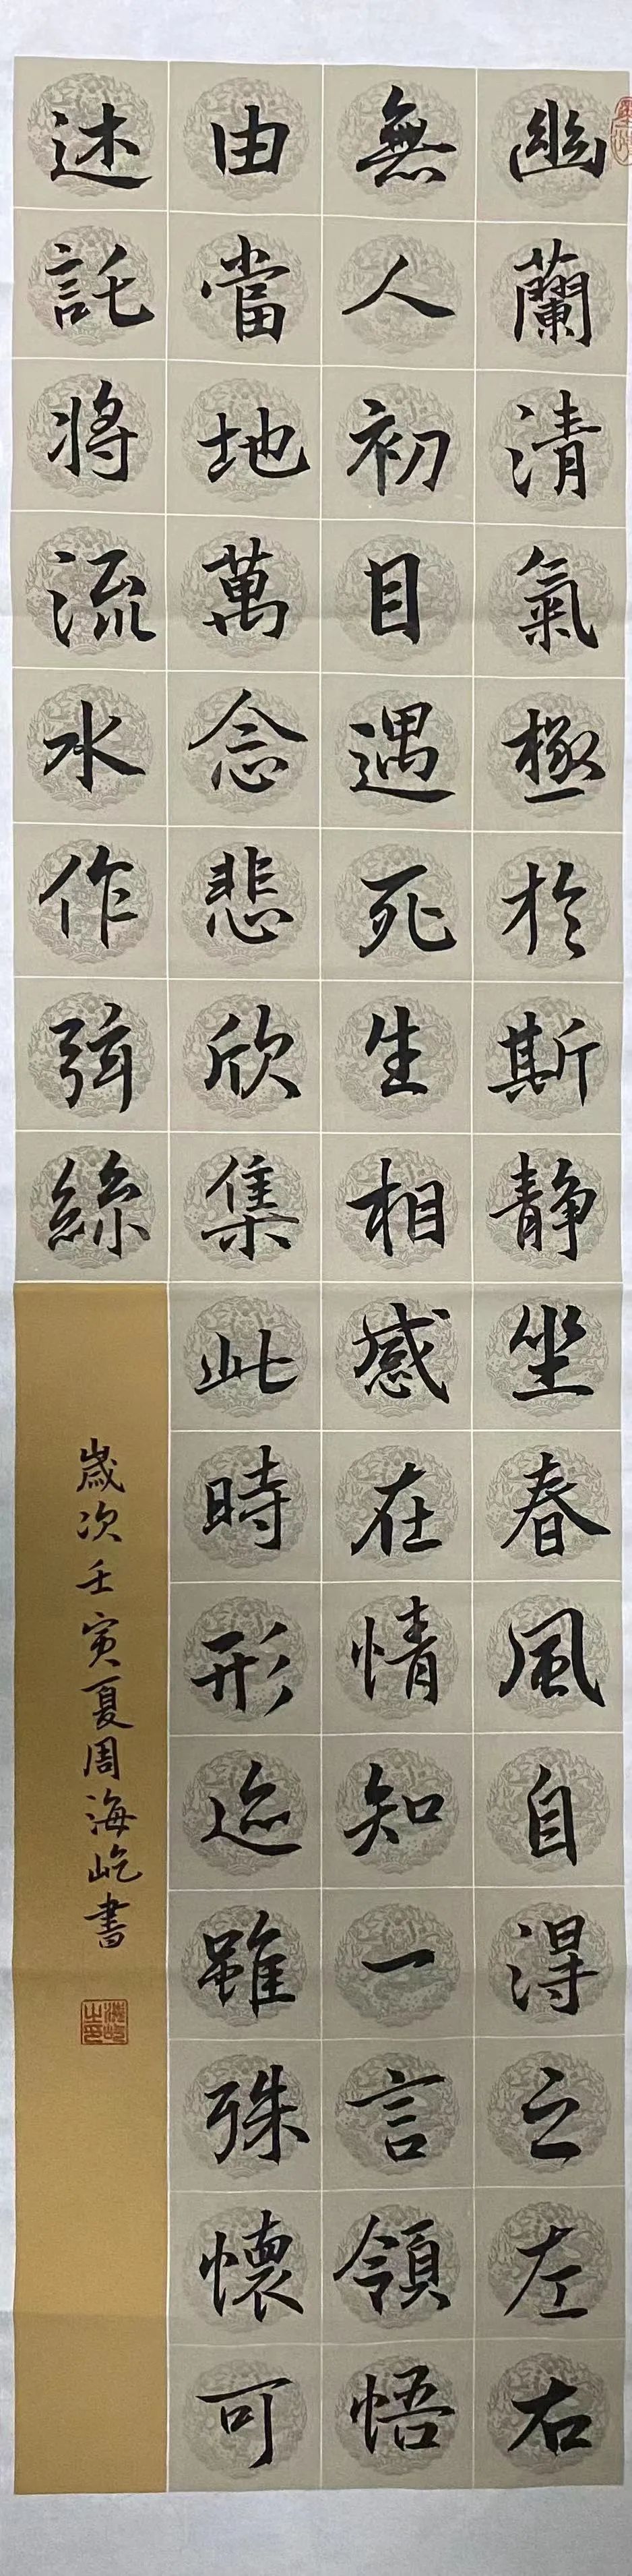 幽蘭清氣極於斯靜坐春風自得之左右
無人初目遇死生相感在情知一言領悟
由當地萬念悲欣集此時形迹雖殊懷可
述託將流水作弦絲
歲次壬寅夏周海屹書